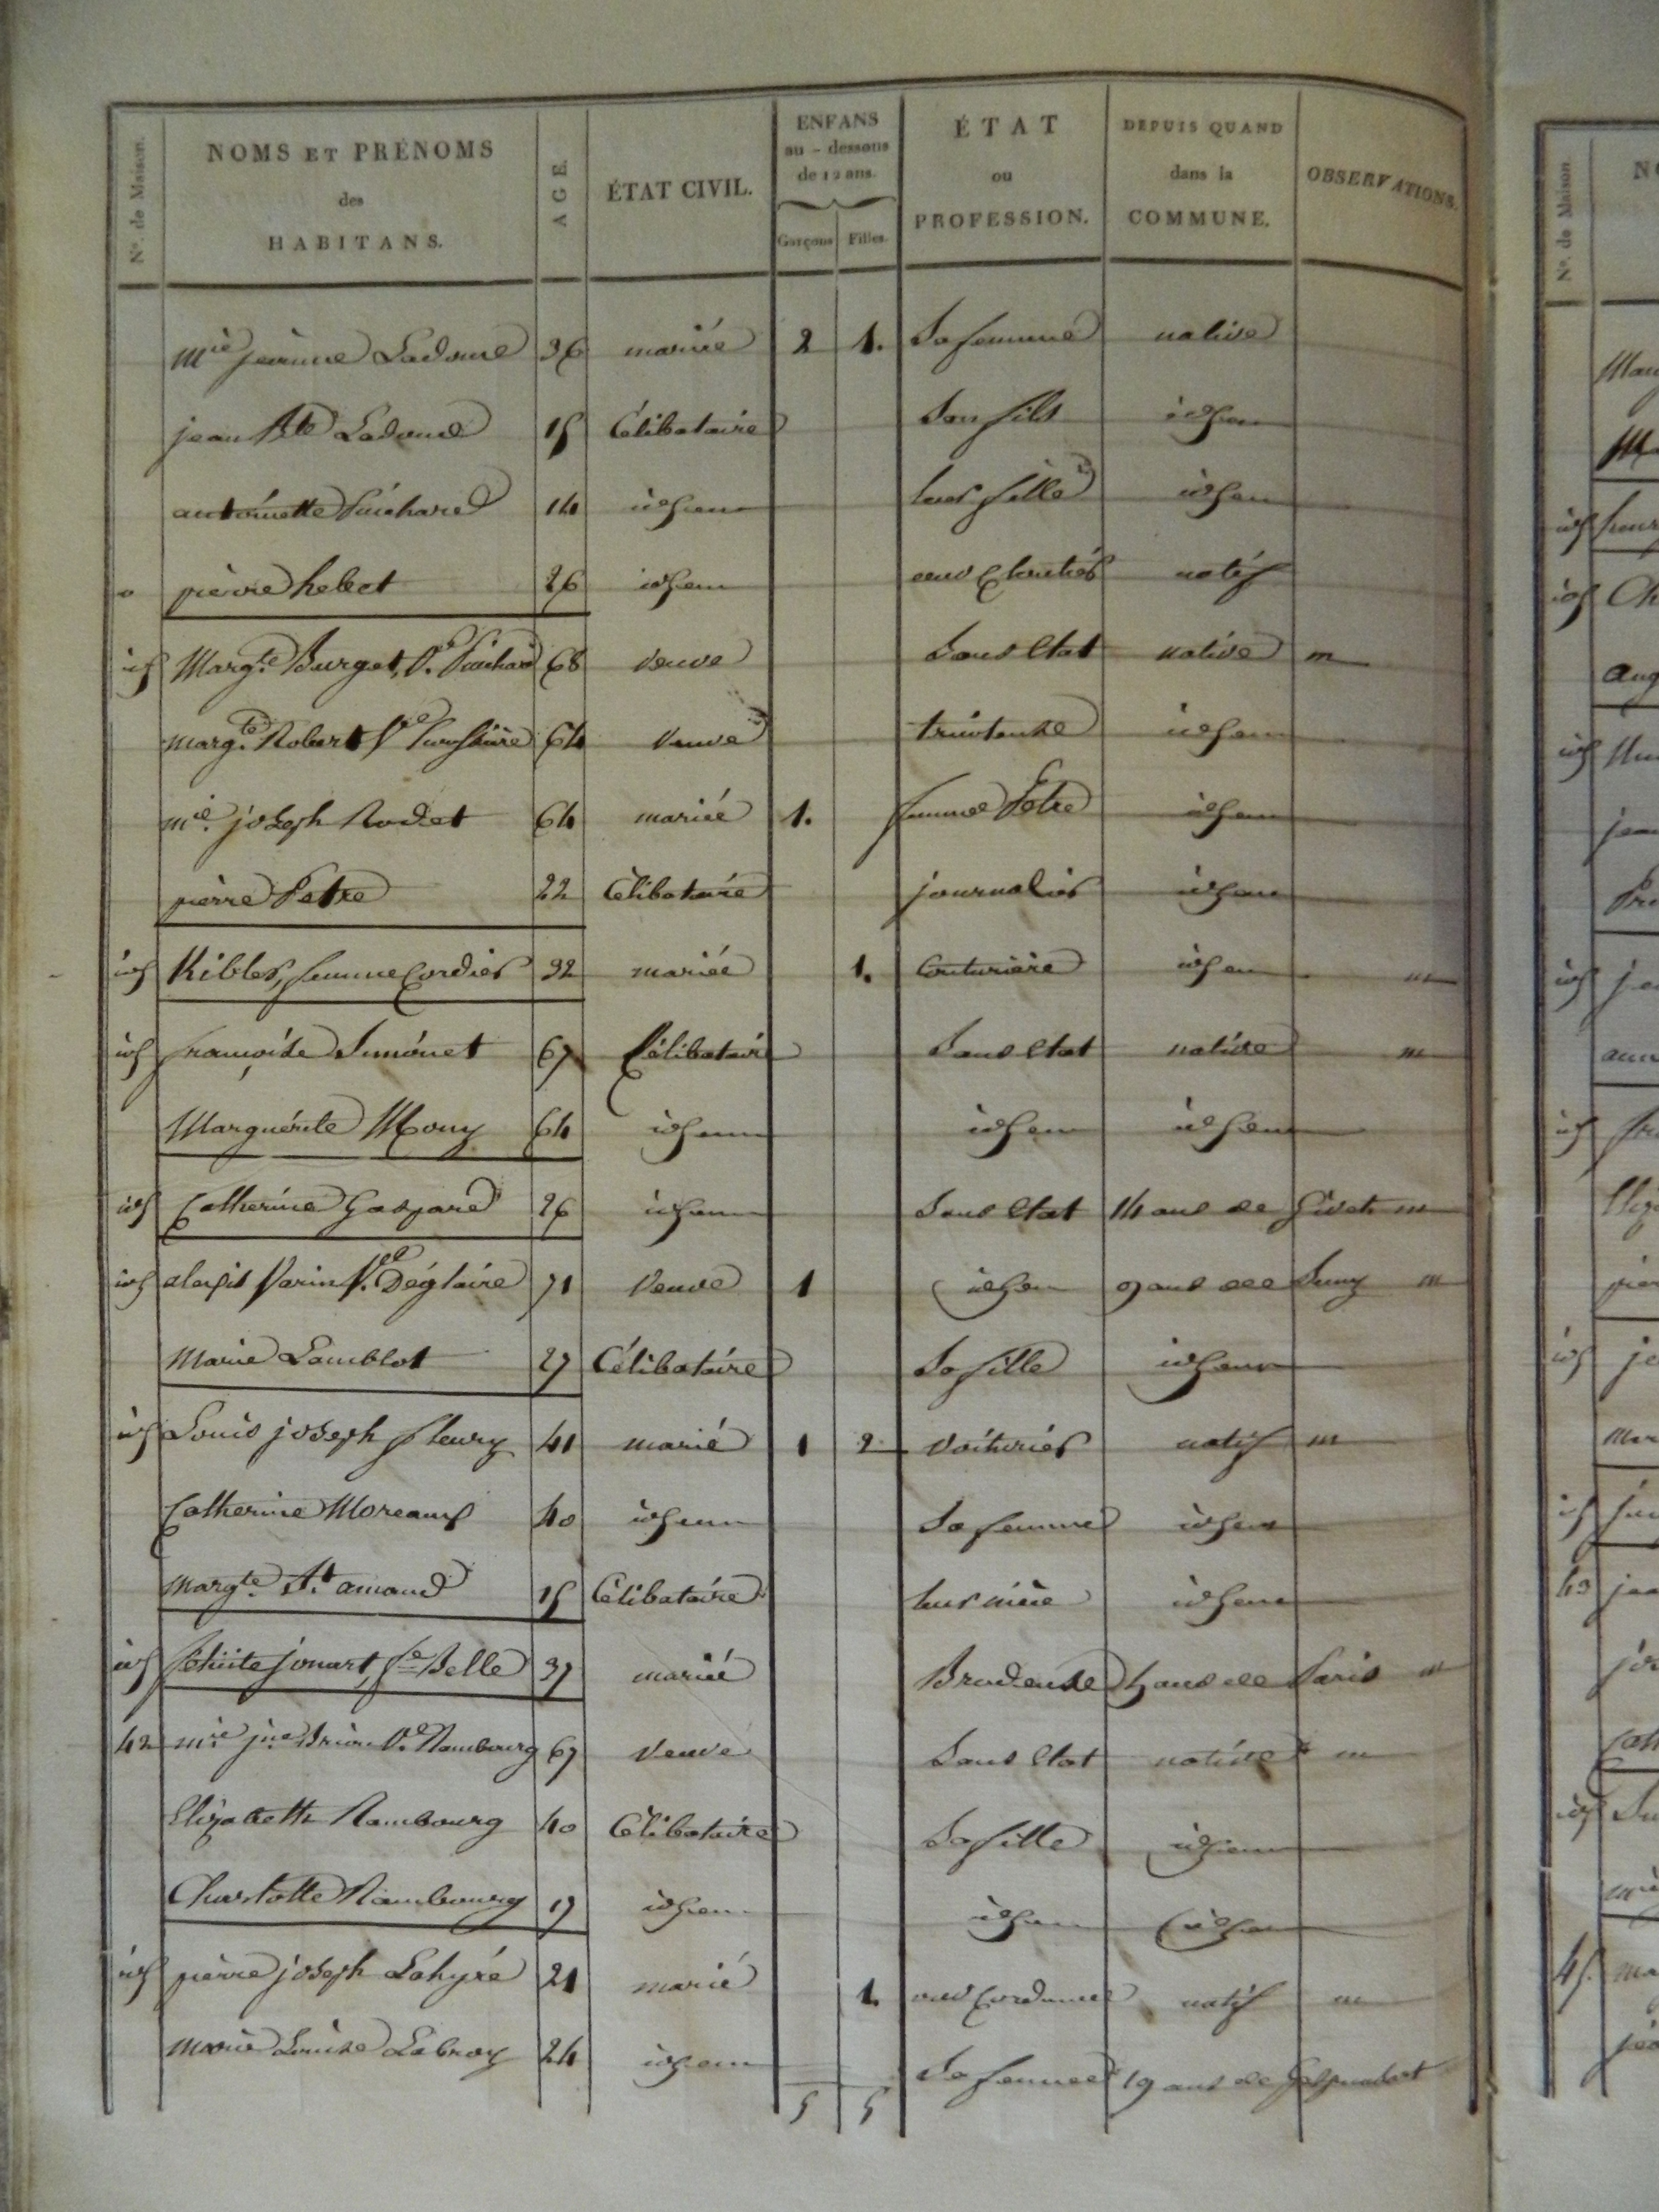 N°. de Maison. NOMS ET PRÉNOMS des HABITANS. AGE. ÉTAT CIVIL. ENFANS au-dessous de 12 ans. Garçons Filles. ÉTAT ou PROFESSION. DEPUIS QUAND dans la COMMUNE. OBSERVATIONS.
Mie jeanne Ladouce 36 mariée 2 1. Sa femme native
jean Bte Ladouce 15 Célibataire Son fils idem
antoinette 14 idem leur fille idem
pierre hebet 26 idem ouv Cloutier natif
id Margte Burget, Ve 68 Veuve Sans Etat native m
margte Robert Ve 64 Veuve tricoteuse idem
mie. joseph Rodet 64 mariée 1. femme Petre idem
pierre Petre 22 Célibataire journalier idem
id Kibler, femme Cordier 32 mariée 1. Couturière idem m
id françoise Simonet 67 Célibataire Sans Etat native m
Marguérite Mony 64 idem idem idem
id Catherine Gaspard 26 idem Sans Etat 14 ans de Givet m
id alexis Varin Ve. Déglaire 71 Veuve 1 idem 9 ans de m
Marie Lamblot 27 Célibataire Sa fille idem
id Louis joseph fleury 41 marié 1 2 Voiturier natif m
Catherine Moreaux 40 idem Sa femme idem
margte. St. amand 15 Célibataire leur nièce idem
id jonart, fe Belle 37 mariée Brodeuse 4 ans de Paris m
42 mie jne Brion Ve Rambourg 67 Veuve Sans Etat native m
Elizabeth Rambourg 40 Célibataire Sa fille idem
Charlotte Rambourg 19 idem idem idem
id pierre joseph Lahyre 21 marié 1. ouv Cordonnier natif m
marie Louise Labroy 24 idem Sa femme 19 ans de
5 5